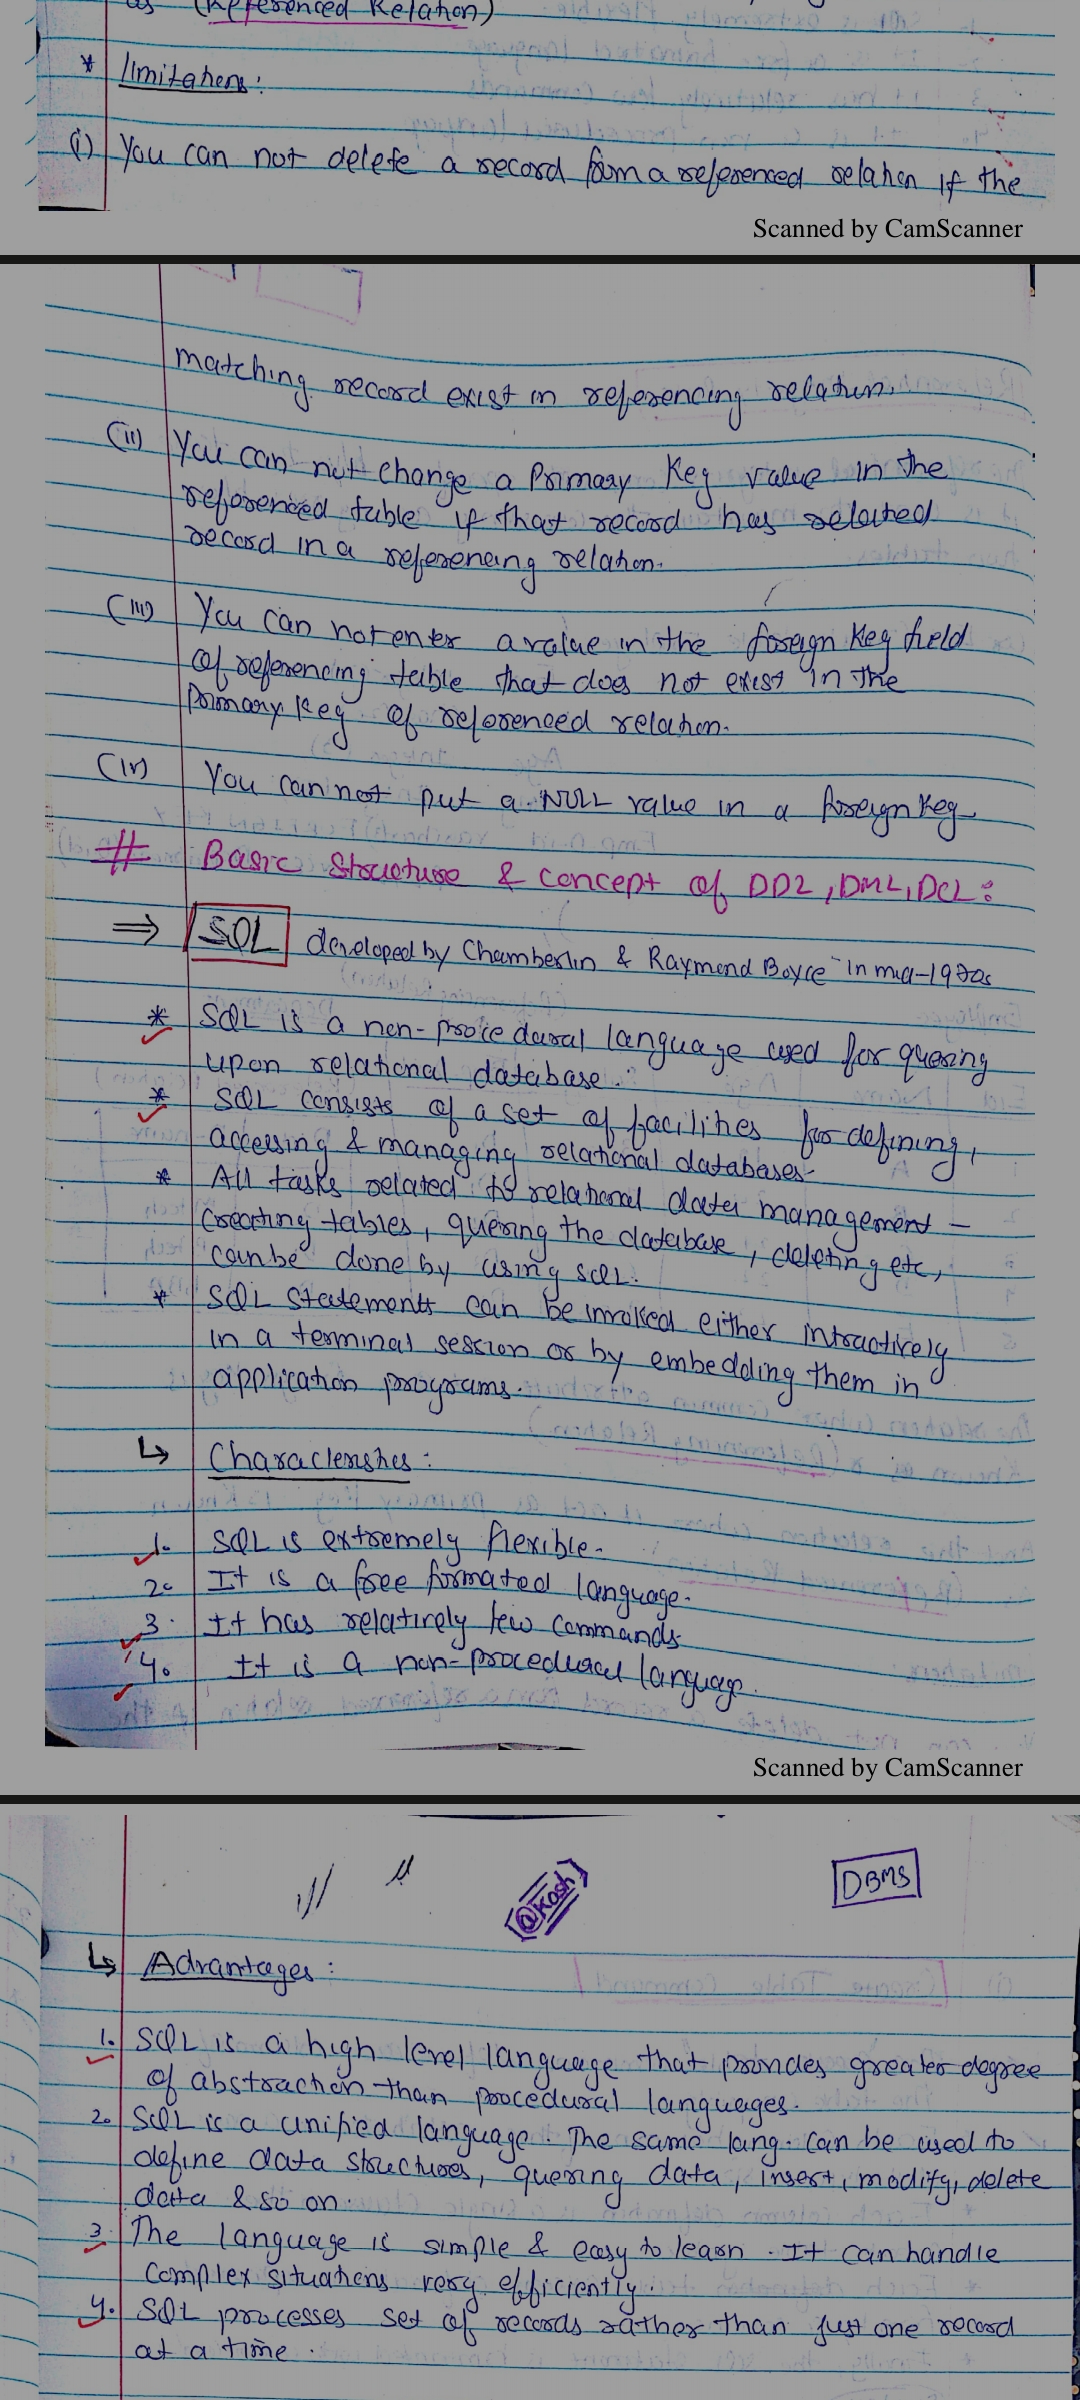 as (Referenced Relation)
* limitations:
(i) You can not delete a record form a referenced relation if the
Scanned by CamScanner
matching record exist in referencing relation.
(ii) You can not change a Primary Key value in the
referenced table if that record has related
record in a referencing relation.
(iii) You can not enter a value in the foreign Key field
of referencing table that does not exist in the
Primary Key of referenced relation.
(iv) You can not put a NULL value in a foreign Key
# Basic Structure & concept of DDL, DML, DCL:
⇒ SQL developed by Chamberlin & Raymond Boyce in mid-1970s
* SQL is a non-procedural language used for quering
upon relational database.
* SQL consists of a set of facilities for defining,
accessing & managing relational databases
* All tasks related to relational data management –
creating tables, quering the database, deleting etc,
can be done by using SQL.
* SQL statements can be invoked either intractively
in a terminal session or by embedding them in
application programs.
↳ Characteristics:
1. SQL is extremely flexible.
2. It is a free formated language.
3. It has relatively few commands
4. It is a non-procedural language.
Scanned by CamScanner
@kash
DBMS
↳ Advantages:
1. SQL is a high level language that provides greater degree
of abstraction than procedural languages.
2. SQL is a unified language. The same lang. can be used to
define data structures, quering data, insert, modify, delete
data & so on.
3. The language is simple & easy to learn. It can handle
complex situations very efficiently.
4. SQL processes set of records rather than just one record
at a time.